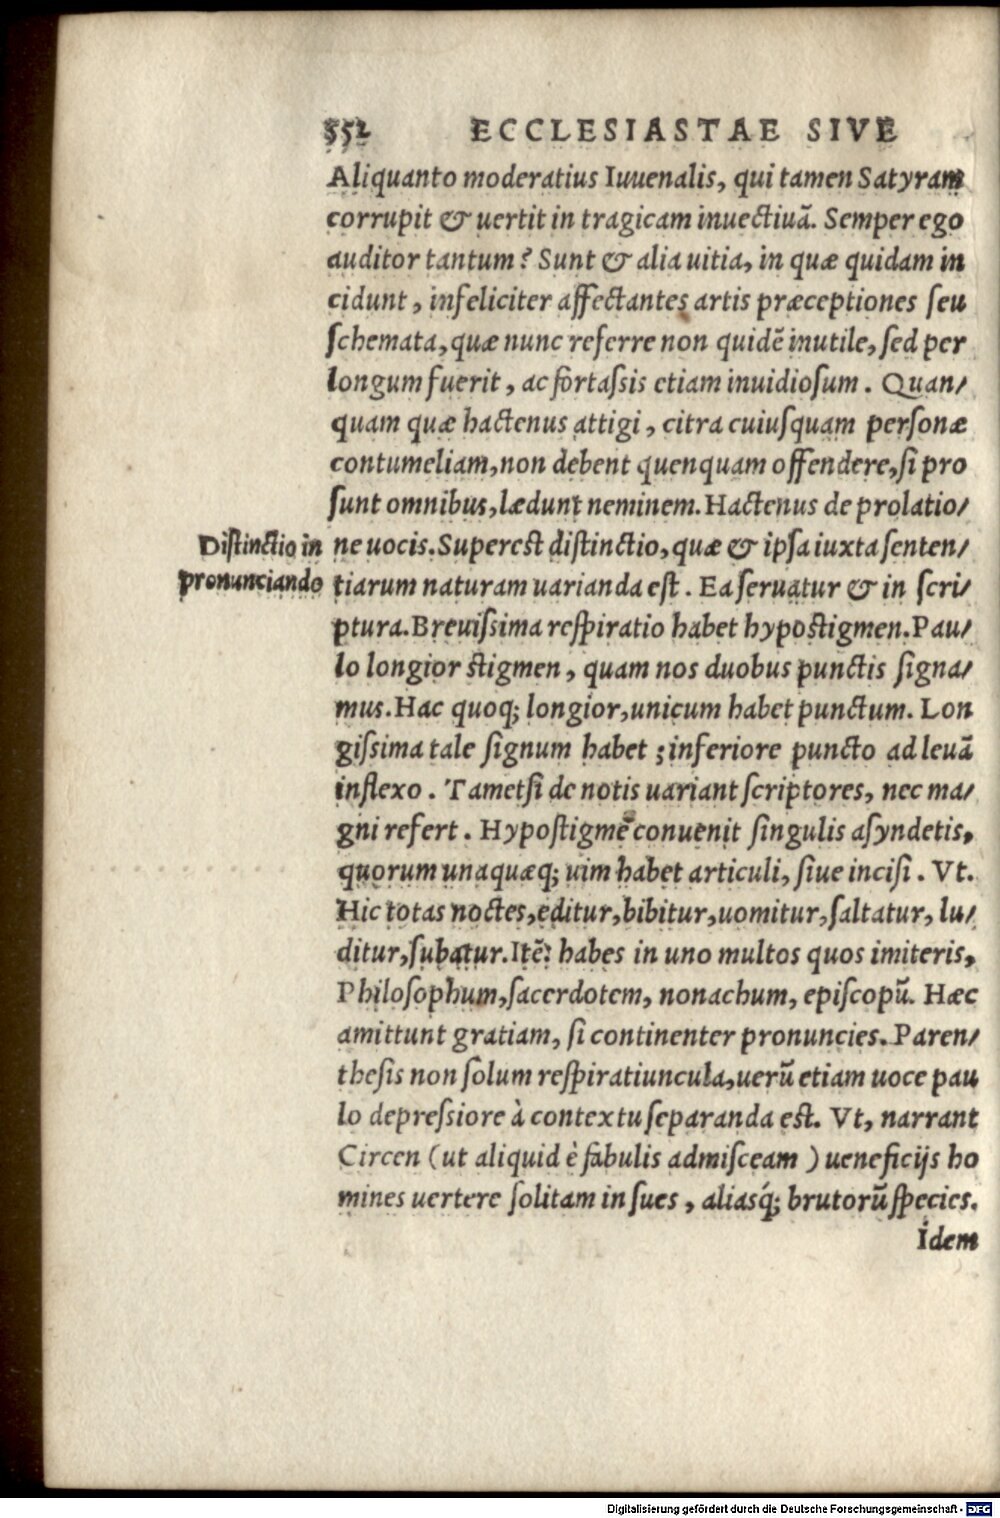 552 ECCLESIASTAE SIVE
Aliquanto moderatius Iuuenalis, qui tamen Satyram
corrupit & uertit in tragicam inuectiuā. Semper ego
auditor tantum? Sunt & alia uitia, in quæ quidam in
cidunt, infeliciter affectantes artis præceptiones seu
schemata, quæ nunc referre non quidē inutile, sed per
longum fuerit, ac fortassis etiam inuidiosum. Quan/
quam quæ hactenus attigi, citra cuiusquam personæ
contumeliam, non debent quenquam offendere, si pro
sunt omnibus, lædunt neminem. Hactenus de prolatio/
Distinctio in
pronunciando
ne uocis. Superest distinctio, quæ & ipsa iuxta senten/
tiarum naturam uarianda est. Ea seruatur & in scri/
ptura. Breuissima respiratio habet hypostigmen. Pau/
lo longior stigmen, quam nos duobus punctis signa/
mus. Hac quoq; longior, unicum habet punctum. Lon
gissima tale signum habet ; inferiore puncto ad leuā
inflexo. Tametsi de notis uariant scriptores, nec ma/
gni refert. Hypostigmē conuenit singulis asyndetis,
quorum unaquæq; uim habet articuli, siue incisi. Vt.
Hic totas noctes, editur, bibitur, uomitur, saltatur, lu/
ditur, subatur. Itē: habes in uno multos quos imiteris,
Philosophum, sacerdotem, nonachum, episcopū. Hæc
amittunt gratiam, si continenter pronuncies. Paren/
thesis non solum respiratiuncula, uerū etiam uoce pau
lo depressiore à contextu separanda est. Vt, narrant
Circen (ut aliquid è fabulis admisceam ) ueneficijs ho
mines uertere solitam in sues, aliasq́; brutorū species.
Idem
Digitalisierung gefördert durch die Deutsche Forschungsgemeinschaft - DFG